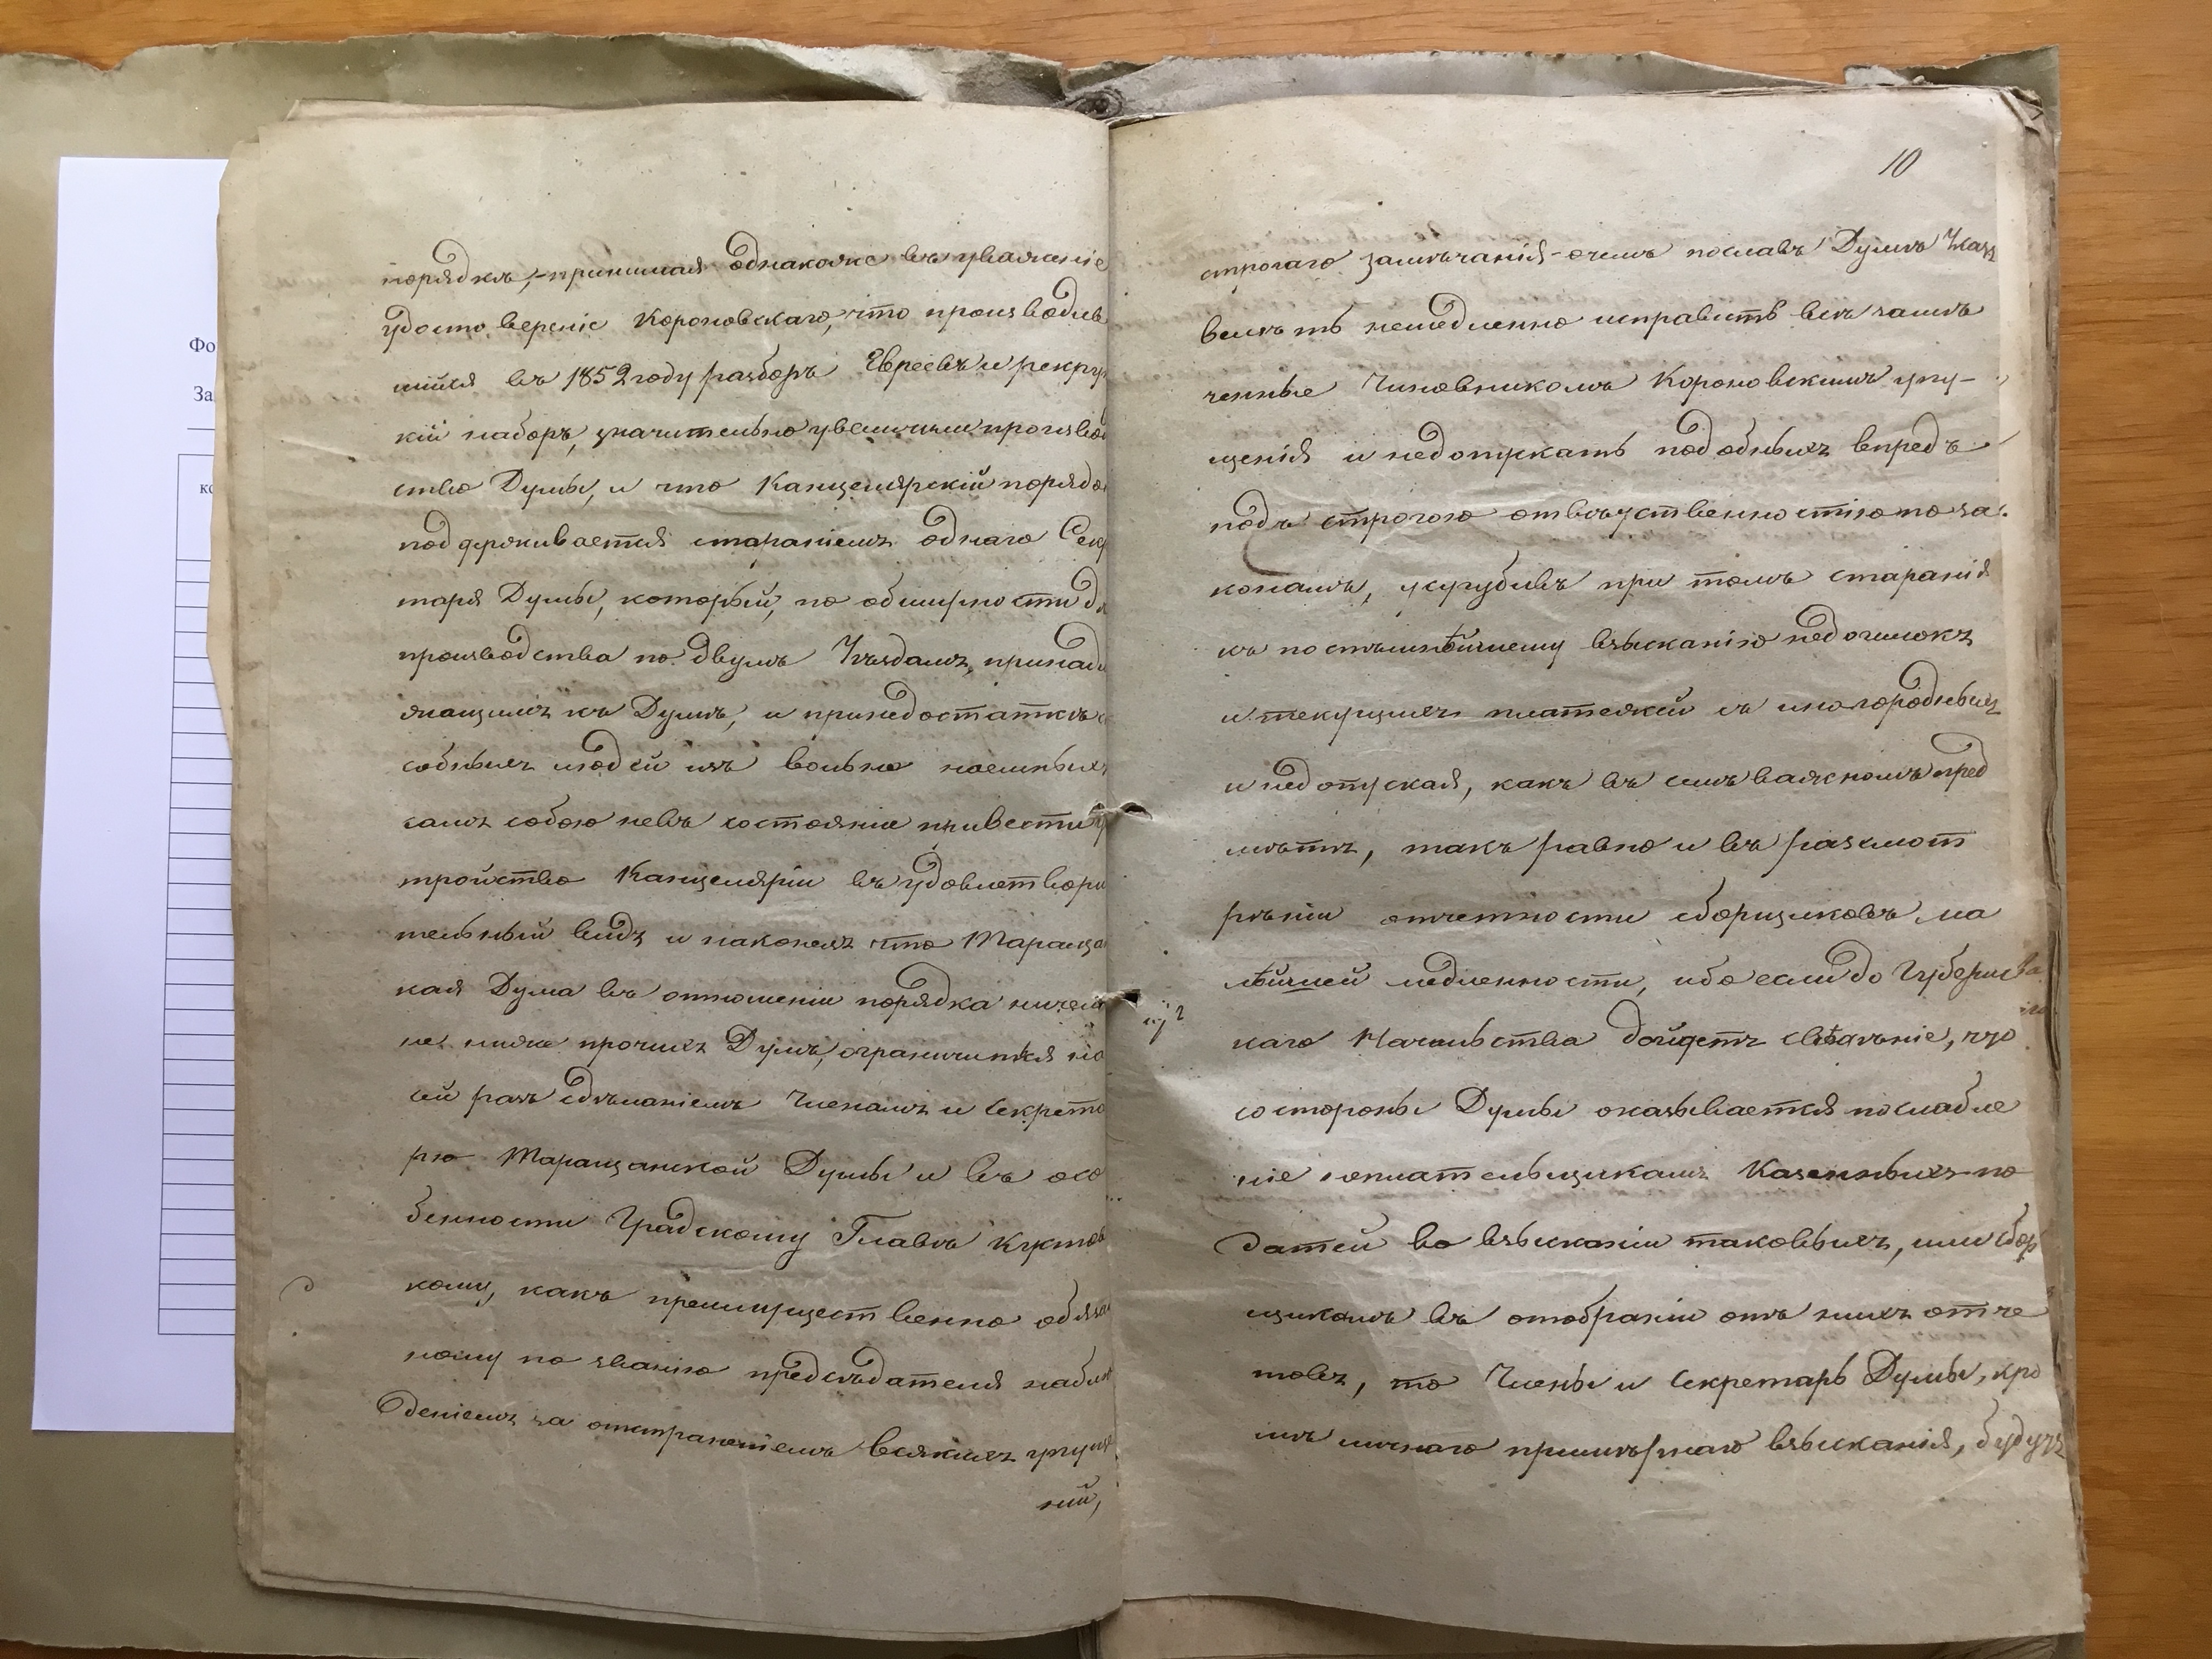 Фо
За
ко
порядкѣ,-принимая однакоже въ уваженіе
удостовереніе Короновскаго, что производив
шійся въ 1852 году разборъ Евреевъ и рекру
кій наборъ, значительно увеличили производ
ство Думы, и что Канцелярскій порядо
поддерживается стараніемъ однаго Секр
таря Думы, который, по обширности д
производства по двумъ Уѣздамъ, принадл
жащимъ къ Думѣ, и принедостаткѣ с
собныхъ людей изъ вольно наемныхъ
самъ собою невъ состояніи привести у
тройство Канцеляріи въ удовлетвори
тельный видъ и наконецъ что Таращан
кая Дума въ отношеніи порядка ничем
не ниже прочихъ Думъ, ограничится на
сей разъ сдѣланіемъ Членамъ и Секрета
рю Таращанской Думы и въ осо
бенности Градскому Главѣ
кому, какъ преимущественно обязан
ному по званію предсѣдателя наблю
деніемъ за отстраненіемъ всякихъ упуще
ній,
10
строгаго замѣчанія-очемъ пославъ Думѣ Указъ
велѣть немедленно исправить всѣ замѣ
ченные Чиновникомъ Короновскимъ упу-
щенія и недопускать подобныхъ впредъ
подъ строгою отвѣтственностію по за
конамъ, усугубивъ при томъ старанія
къ поспѣшнѣйшему взысканію недоимокъ
и текущихъ платежей съ иногородныхъ
и недопуская, какъ въ семъ важномъ пред
мѣтѣ, такъ равно и въ разсмот
рѣніи отчетности сборщиковъ, ма
лѣйшей медленности, ибо если до Губернс
каго Начальства дойдетъ свѣденіе, что
со стороны Думы оказывается послабле
ніе неплательщикамъ Казенныхъ по
датей во взысканіи таковыхъ, или сбор
щикамъ въ отобраніи отъ нихъ отче
товъ, то Члены и Секретарь Думы, кро
мѣ личнаго примѣрнаго взысканія, будутъ